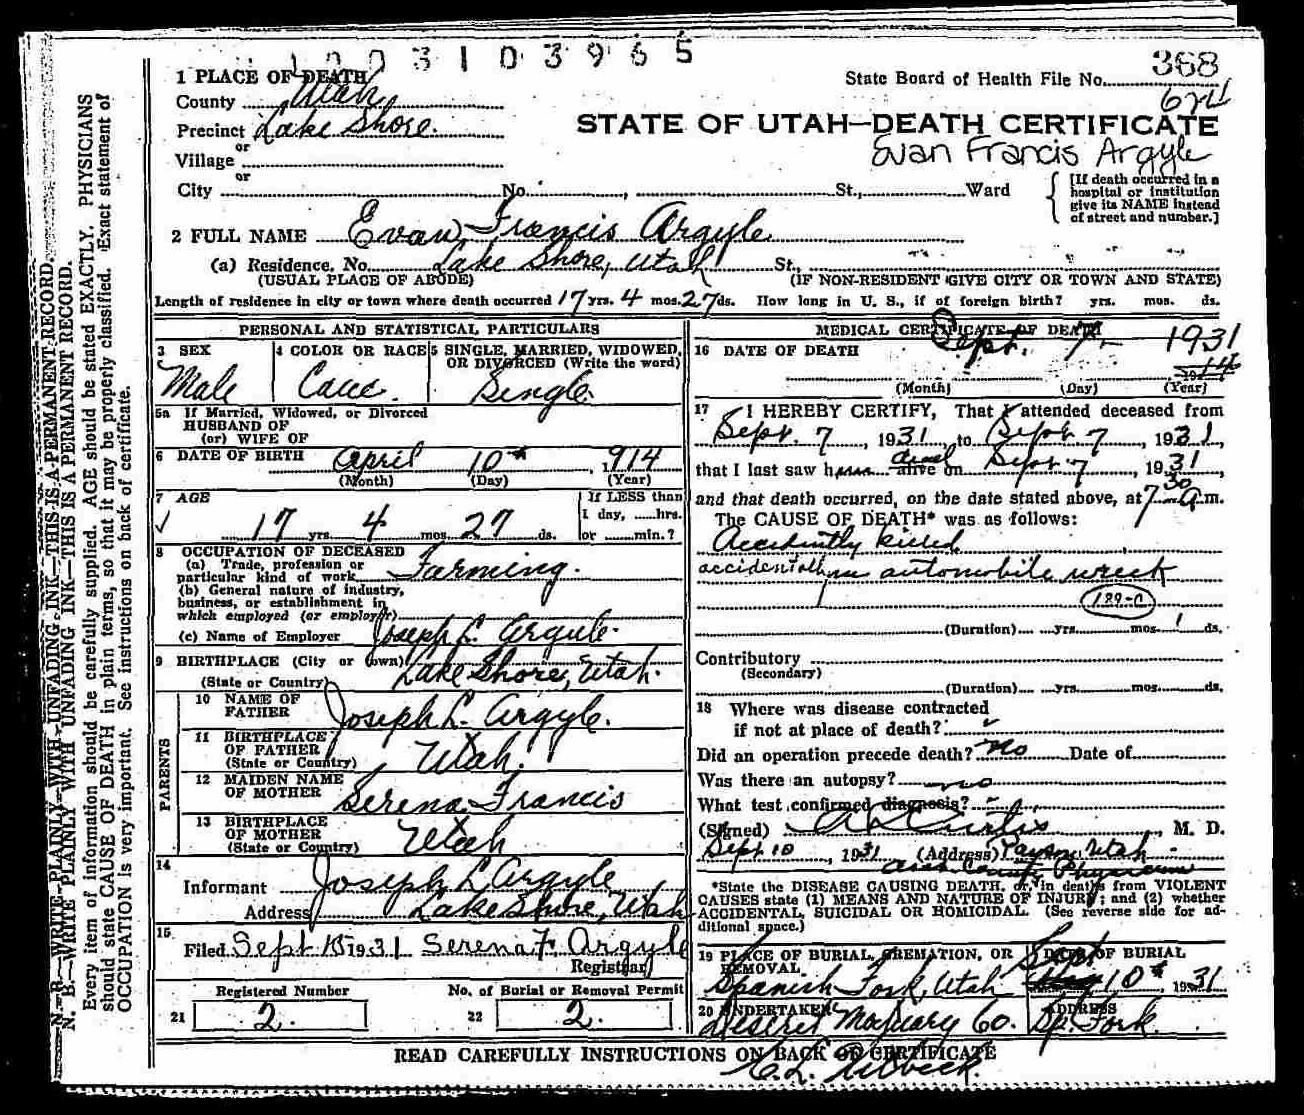 1003103965
368
1 PLACE OF DEATH
State Board of Health File No.
County Utah
624
Precinct Lake Shore.
STATE OF UTAH—DEATH CERTIFICATE
or
Evan Francis Argyle
Village
or
City No. , St., Ward
[If death occurred in a
hospital or institution
give its NAME instead
of street and number.]
2 FULL NAME Evan Francis Argyle
(a) Residence. No. Lake Shore, Utah St.,
(USUAL PLACE OF ABODE) (IF NON-RESIDENT GIVE CITY OR TOWN AND STATE)
Length of residence in city or town where death occurred 17 yrs. 4 mos. 27 ds. How long in U. S., if of foreign birth? yrs. mos. ds.
PERSONAL AND STATISTICAL PARTICULARS
3 SEX 4 COLOR OR RACE 5 SINGLE, MARRIED, WIDOWED,
OR DIVORCED (Write the word)
Male Cauc. Single
5a If Married, Widowed, or Divorced
HUSBAND OF
(or) WIFE OF
6 DATE OF BIRTH April 10th, 1914
(Month) (Day) (Year)
7 AGE If LESS than
1 day, hrs.
✓ 17 yrs. 4 mos. 27 ds. or min.?
8 OCCUPATION OF DECEASED
(a) Trade, profession or
particular kind of work Farming.
(b) General nature of industry,
business, or establishment in
which employed (or employer)
(c) Name of Employer Joseph L. Argyle.
9 BIRTHPLACE (City or town)
(State or Country) Lake Shore, Utah.
PARENTS
10 NAME OF
FATHER Joseph L. Argyle.
11 BIRTHPLACE
OF FATHER
(State or Country) Utah.
12 MAIDEN NAME
OF MOTHER Serena Francis
13 BIRTHPLACE
OF MOTHER
(State or Country) Utah
14
Informant Joseph L Argyle
Address Lake Shore, Utah
15
Filed Sept 1931 Serena F. Argyle
Registrar
Registered Number No. of Burial or Removal Permit
21 2. 22 2.
MEDICAL CERTIFICATE OF DEATH
16 DATE OF DEATH Sept. 7- 1931
(Month) (Day) (Year)
17 I HEREBY CERTIFY, That I attended deceased from
Sept. 7, 1931, to Sept 7, 1931
that I last saw him dead alive on Sept 7, 1931,
and that death occurred, on the date stated above, at 7 30 A m.
The CAUSE OF DEATH* was as follows:
Accidently killed
accidentally in automobile wreck
189-C
(Duration) yrs. mos. 1 ds.
Contributory
(Secondary)
(Duration) yrs. mos. ds.
18 Where was disease contracted
if not at place of death?
Did an operation precede death? No Date of
Was there an autopsy? no
What test confirmed diagnosis?
(Signed) Curtis, M. D.
Sept 10, 1931 (Address) Payson, Utah
County Physician
*State the DISEASE CAUSING DEATH, or, in deaths from VIOLENT
CAUSES state (1) MEANS AND NATURE OF INJURY; and (2) whether
ACCIDENTAL, SUICIDAL OR HOMICIDAL. (See reverse side for ad-
ditional space.)
19 PLACE OF BURIAL, CREMATION, OR REMOVAL DATE OF BURIAL
Spanish Fork, Utah Sept 10th, 1931
20 UNDERTAKER ADDRESS
Deseret Mortuary Co. Sp. Fork.
READ CAREFULLY INSTRUCTIONS ON BACK OF CERTIFICATE
N. B.—WRITE PLAINLY WITH UNFADING INK—THIS IS A PERMANENT RECORD.
N. B.—WRITE PLAINLY WITH UNFADING INK—THIS IS A PERMANENT RECORD.
Every item of information should be carefully supplied. AGE should be stated EXACTLY. PHYSICIANS
should state CAUSE OF DEATH in plain terms, so that it may be properly classified. Exact statement of
OCCUPATION is very important. See instructions on back of certificate.